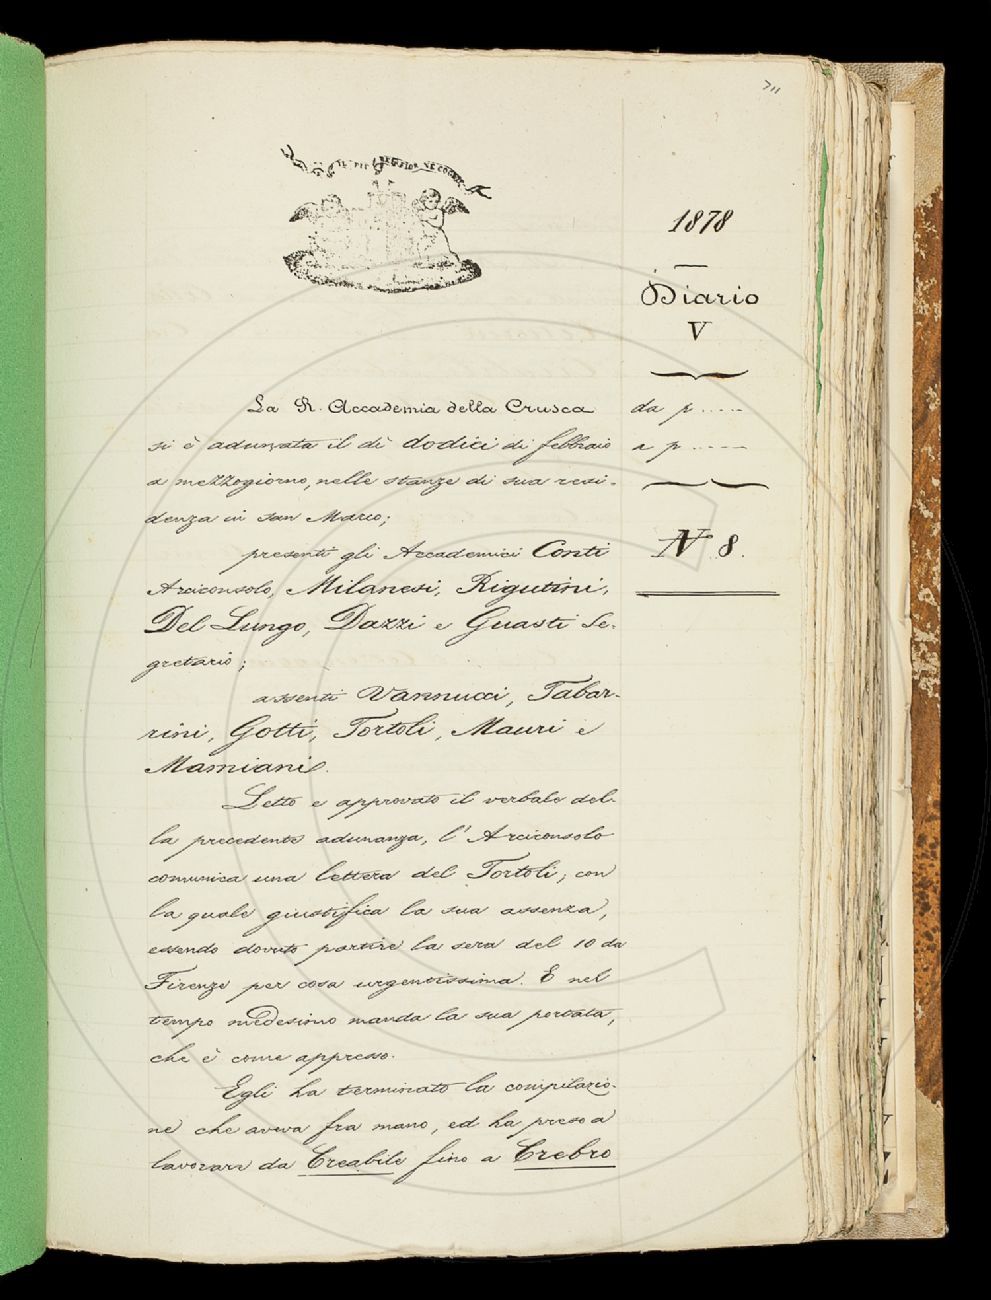 711
IL PIÙ BEL FIOR NE COGLIE
1878
Diario
V
da p .....
a p .....
N 8.
La R. Accademia della Crusca
si è adunata il dì dodici di febbraio
a mezzogiorno, nelle stanze di sua resi-
denza in San Marco;
presenti gli Accademici Conti
Arciconsolo, Milanesi, Rigutini,
Del Lungo, Dazzi e Guasti Se-
gretario;
assenti Vannucci, Tabar-
rini, Gotti, Tortoli, Mauri e
Mamiani.
Letto e approvato il verbale del-
la precedente adunanza, l'Arciconsolo
comunica una lettera del Tortoli, con
la quale giustifica la sua assenza,
essendo dovuto partire la sera del 10 da
Firenze per cosa urgentissima. E nel
tempo medesimo manda la sua portata,
che è come appresso.
Egli ha terminato la compilazio-
ne che aveva fra mano, ed ha preso a
lavorare da Creabile fino a Crebro